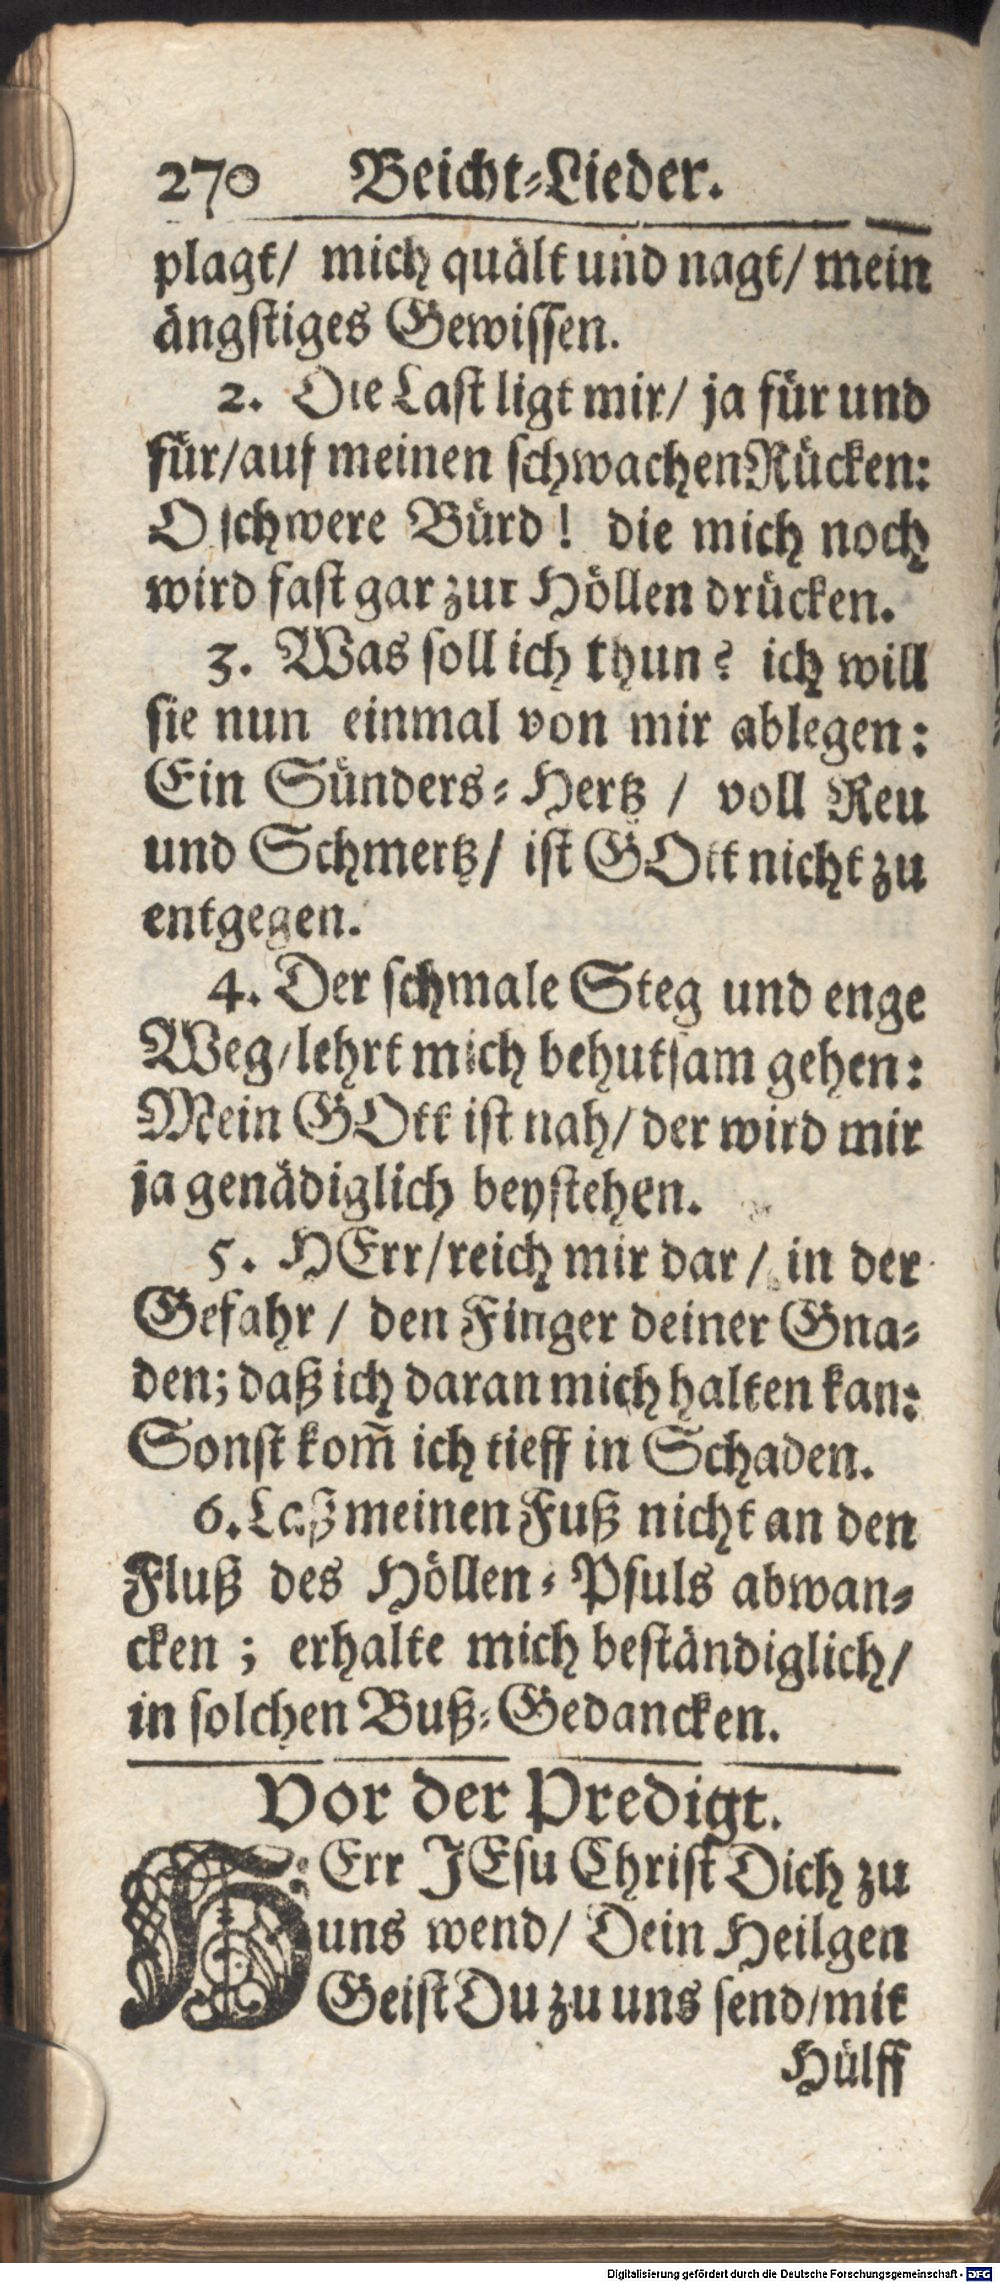 270 Beicht-Lieder.
plagt/ mich quält und nagt/ mein
ängstiges Gewissen.
2. Die Last ligt mir/ ja für und
für/auf meinen schwachen Rücken:
O schwere Bürd! die mich noch
wird fast gar zur Höllen drücken.
3. Was soll ich thun? ich will
sie nun einmal von mir ablegen:
Ein Sünders-Hertz / voll Reu
und Schmertz/ ist GOtt nicht zu
entgegen.
4. Der schmale Steg und enge
Weg/lehrt mich behutsam gehen:
Mein GOtt ist nah/ der wird mir
ja genädiglich beystehen.
5. HErr/reich mir dar/ in der
Gefahr / den Finger deiner Gna-
den; daß ich daran mich halten kan:
Sonst kom̃ ich tieff in Schaden.
6. Laß meinen Fuß nicht an den
Fluß des Höllen-Pfuls abwan-
cken ; erhalte mich beständiglich/
in solchen Buß-Gedancken.
Vor der Predigt.
HErr JEsu Christ Dich zu
uns wend/ Dein Heilgen
Geist Du zu uns send/mit
Hülff
Digitalisierung gefördert durch die Deutsche Forschungsgemeinschaft - DFG